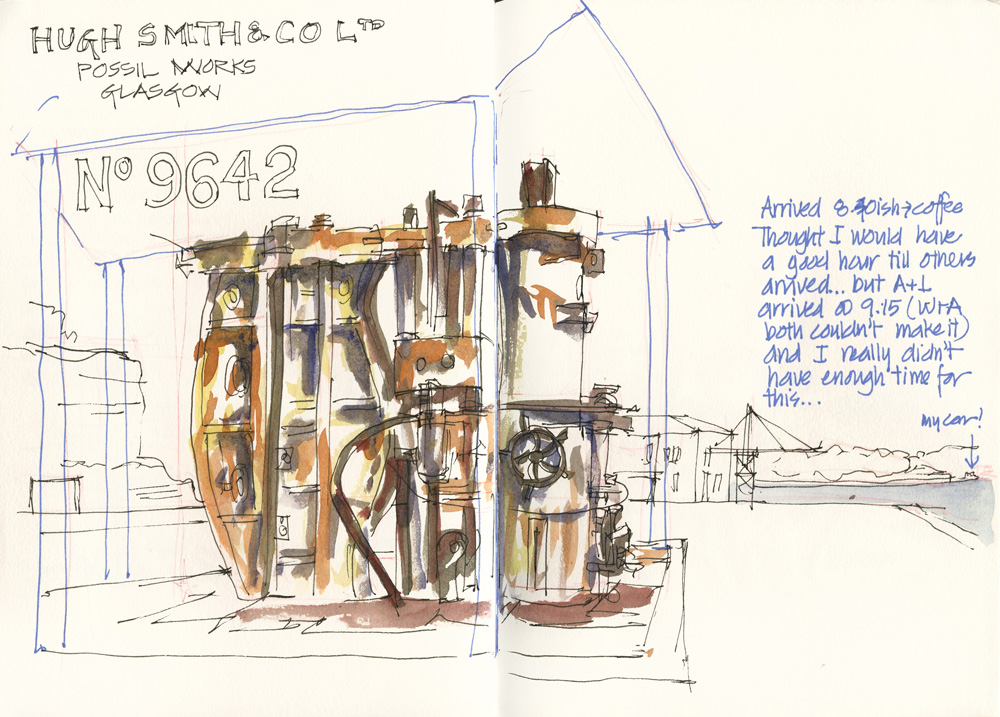 HUGH SMITH & CO LTD
POSSIL WORKS
GLASGOW
No 9642
Arrived 8.30ish → coffee
Thought I would have
a good hour till others
arrived... but A+L
arrived @ 9.15 (W+A
both couldn't make it)
and I really didn't
have enough time for
this...
my car!